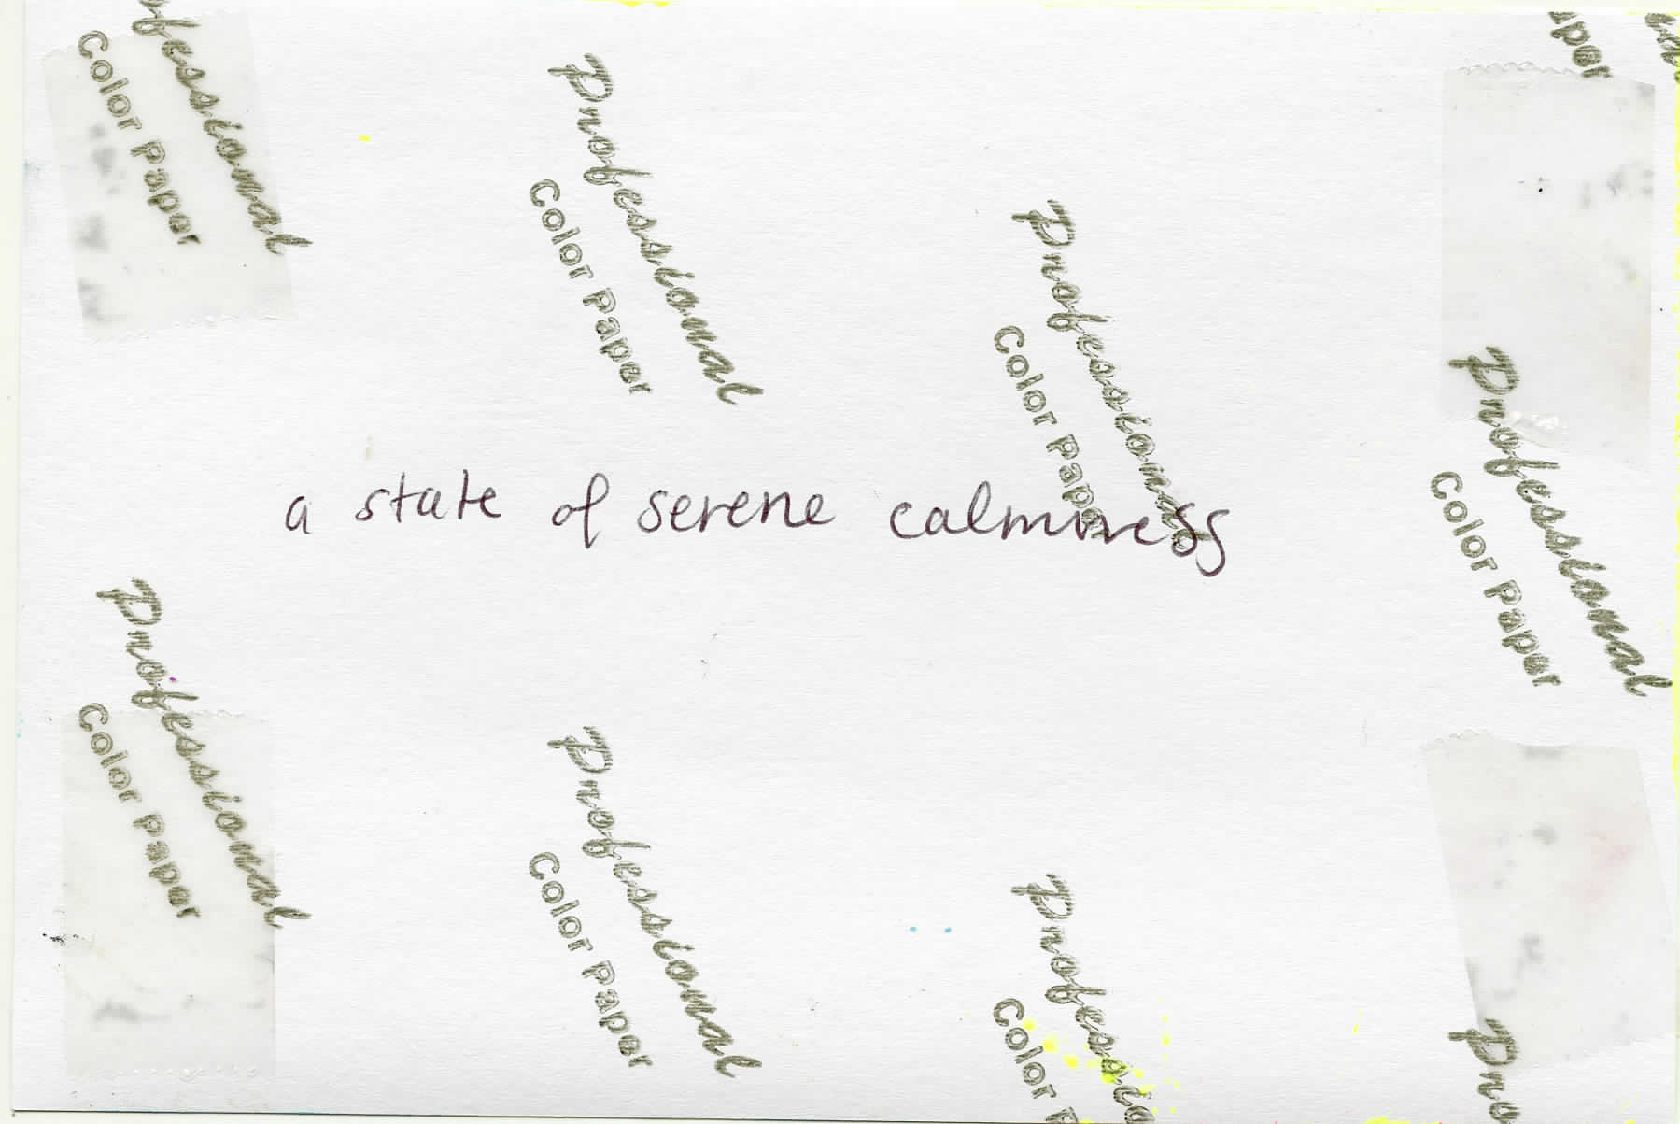 Professional
Color Paper
Professional
Color Paper
Professional
Color Paper
Professional
Color Paper
a state of serene calmness
Professional
Color Paper
Professional
Color Paper
Professional
Color